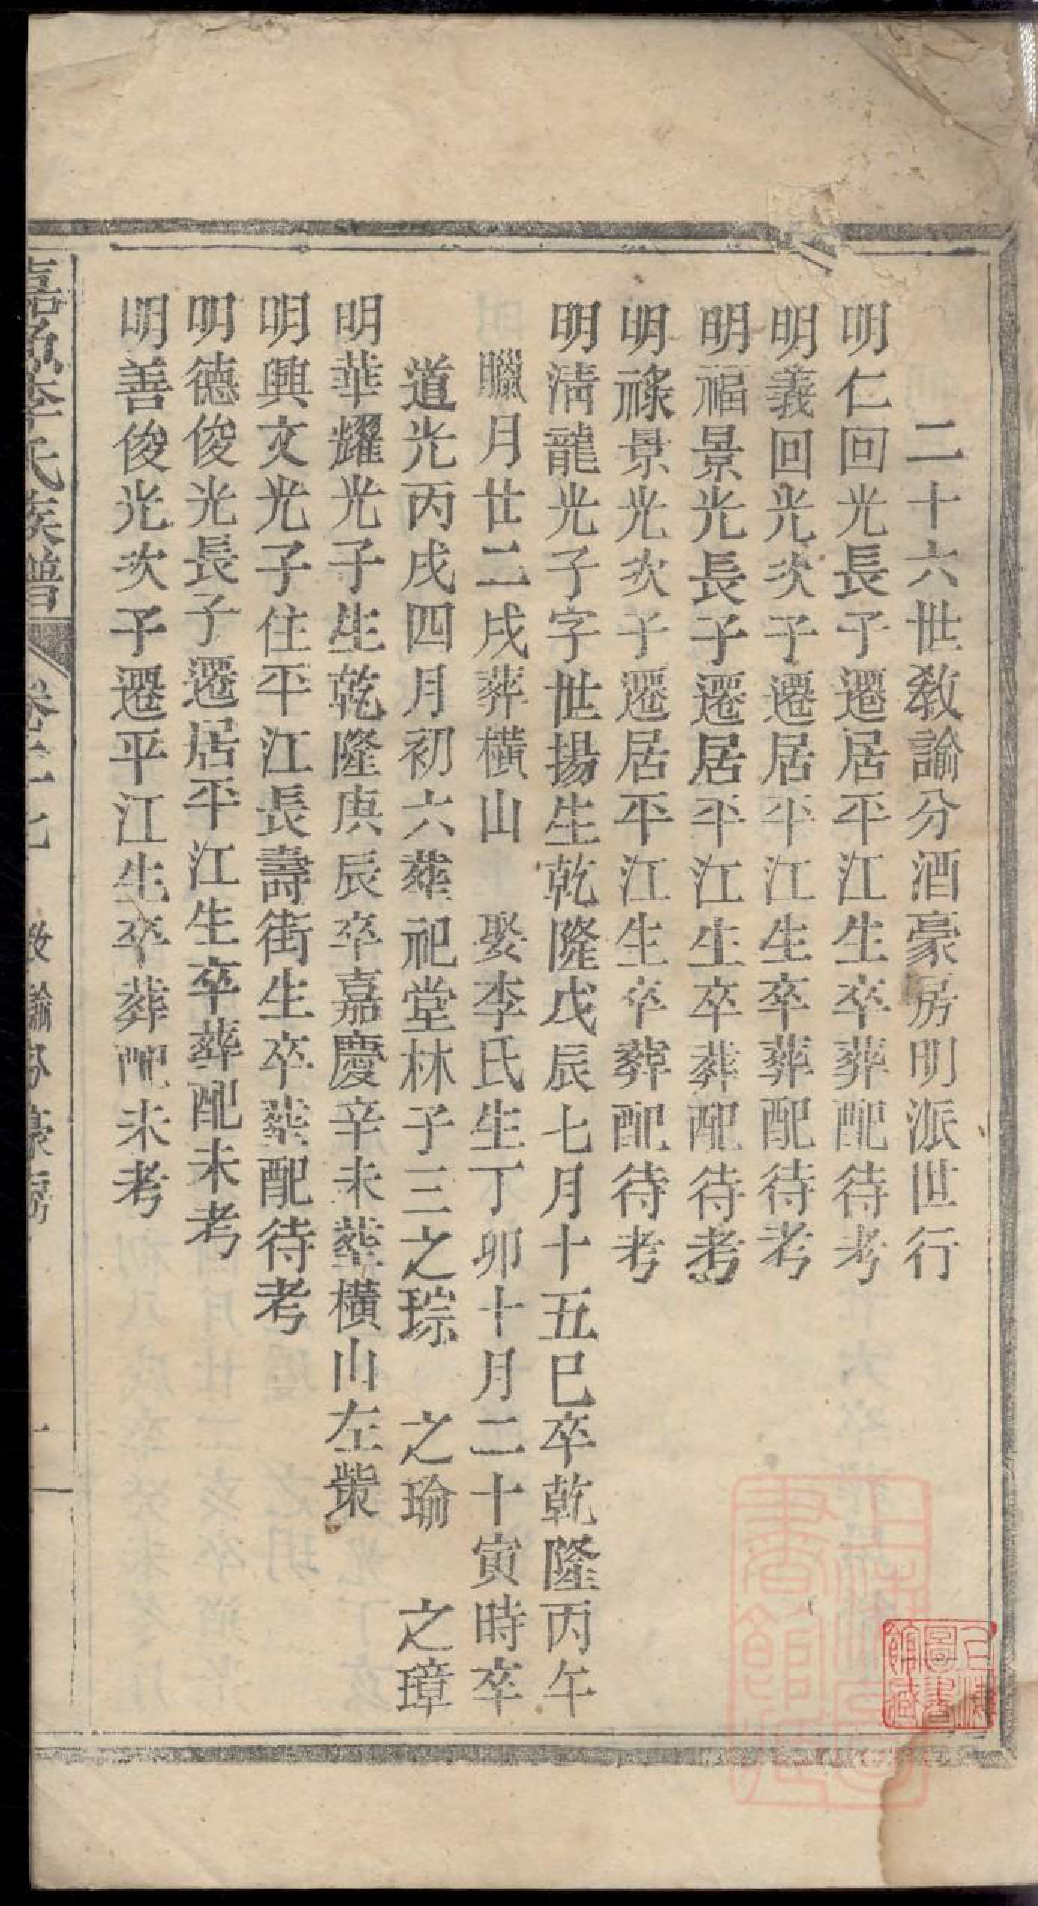 二十六世敎諭分酒豪房明派世行
明仁回光長子遷居平江生卒葬配待考
明義回光次子遷居平江生卒葬配待考
明福景光長子遷居平江生卒葬配待考
明祿景光次子遷居平江生卒葬配待考
明淸龍光子字世揚生乾隆戊辰七月十五巳卒乾隆丙午
臘月廿二戌葬橫山　娶李氏生丁卯十月二十寅時卒
道光丙戌四月初六葬祀堂林子三之琮　之瑜　之璋
明華耀光子生乾隆庚辰卒嘉慶辛未葬橫山左業
明興文光子住平江長壽街生卒葬配待考
明德俊光長子遷居平江生卒葬配未考
明善俊光次子遷平江生卒葬配未考
嘉魚李氏族譜
上海圖書館藏